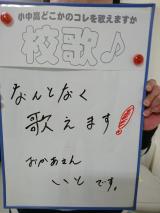 小中高どこかのコレを歌えますか
校歌♪
なんとなく
歌えます!
おかあさん
いと です。